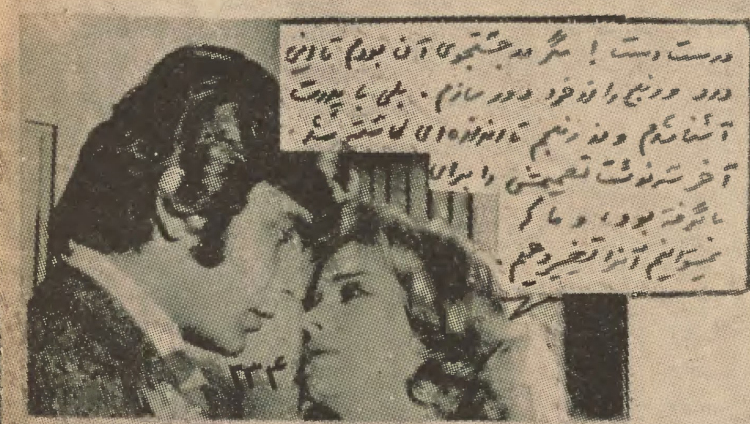 درست است ! مگر در جستجوی آن بودم تا این
درد و رنج را از خود دور سازم . بلی با پدرت
آشنا شدم و درد رنجم تا اندازه‌ای کاسته شد .
آخر سرنوشت تصمیمش را برای
ما گرفته بود ، و ما
نمیتوانیم آنرا تغییر دهیم .
۲۳۴